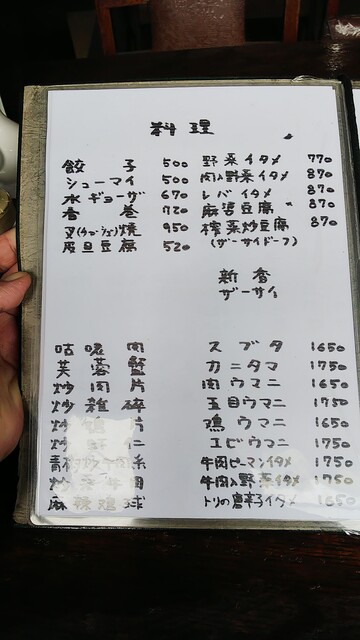 料理
餃子 500
シューマイ 500
水ギョーザ 670
春巻 720
叉(チャーシュー)焼 950
皮旦豆腐 520
野菜イタメ 770
肉入野菜イタメ 870
レバイタメ 870
麻婆豆腐 870
搾菜炒豆腐 870
(ザーサイドーフ)
新香
ザーサイ
咕咾肉 スブタ 1650
芙蓉蟹 カニタマ 1750
炒肉片 肉ウマニ 1650
炒雑碎 五目ウマニ 1750
炒鶏片 鶏ウマニ 1650
炒虾仁 エビウマニ 1750
青椒炒牛肉糸 牛肉ピーマンイタメ 1750
牛肉入野菜イタメ 1750
麻辣鶏球 トリの唐辛子イタメ 1650